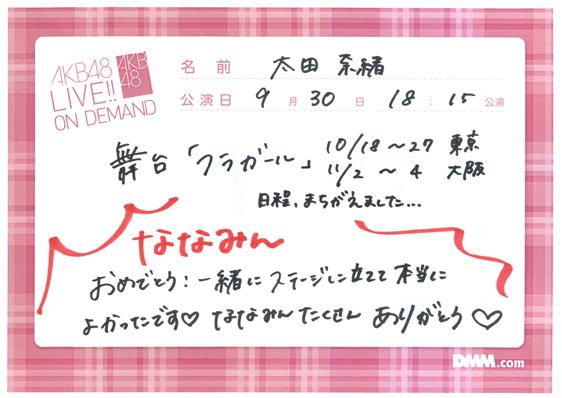 AKB48
LIVE!!
ON DEMAND
AKB
48
名前 太田 奈緒
公演日 9月30日 18:15公演
舞台「フラガール」 10/18〜27 東京
11/2〜4 大阪
日程、まちがえました...
ななみん
おめでとう！一緒にステージに立てて本当に
よかったです♡ ななみんたくさん ありがとう♡
DMM.com